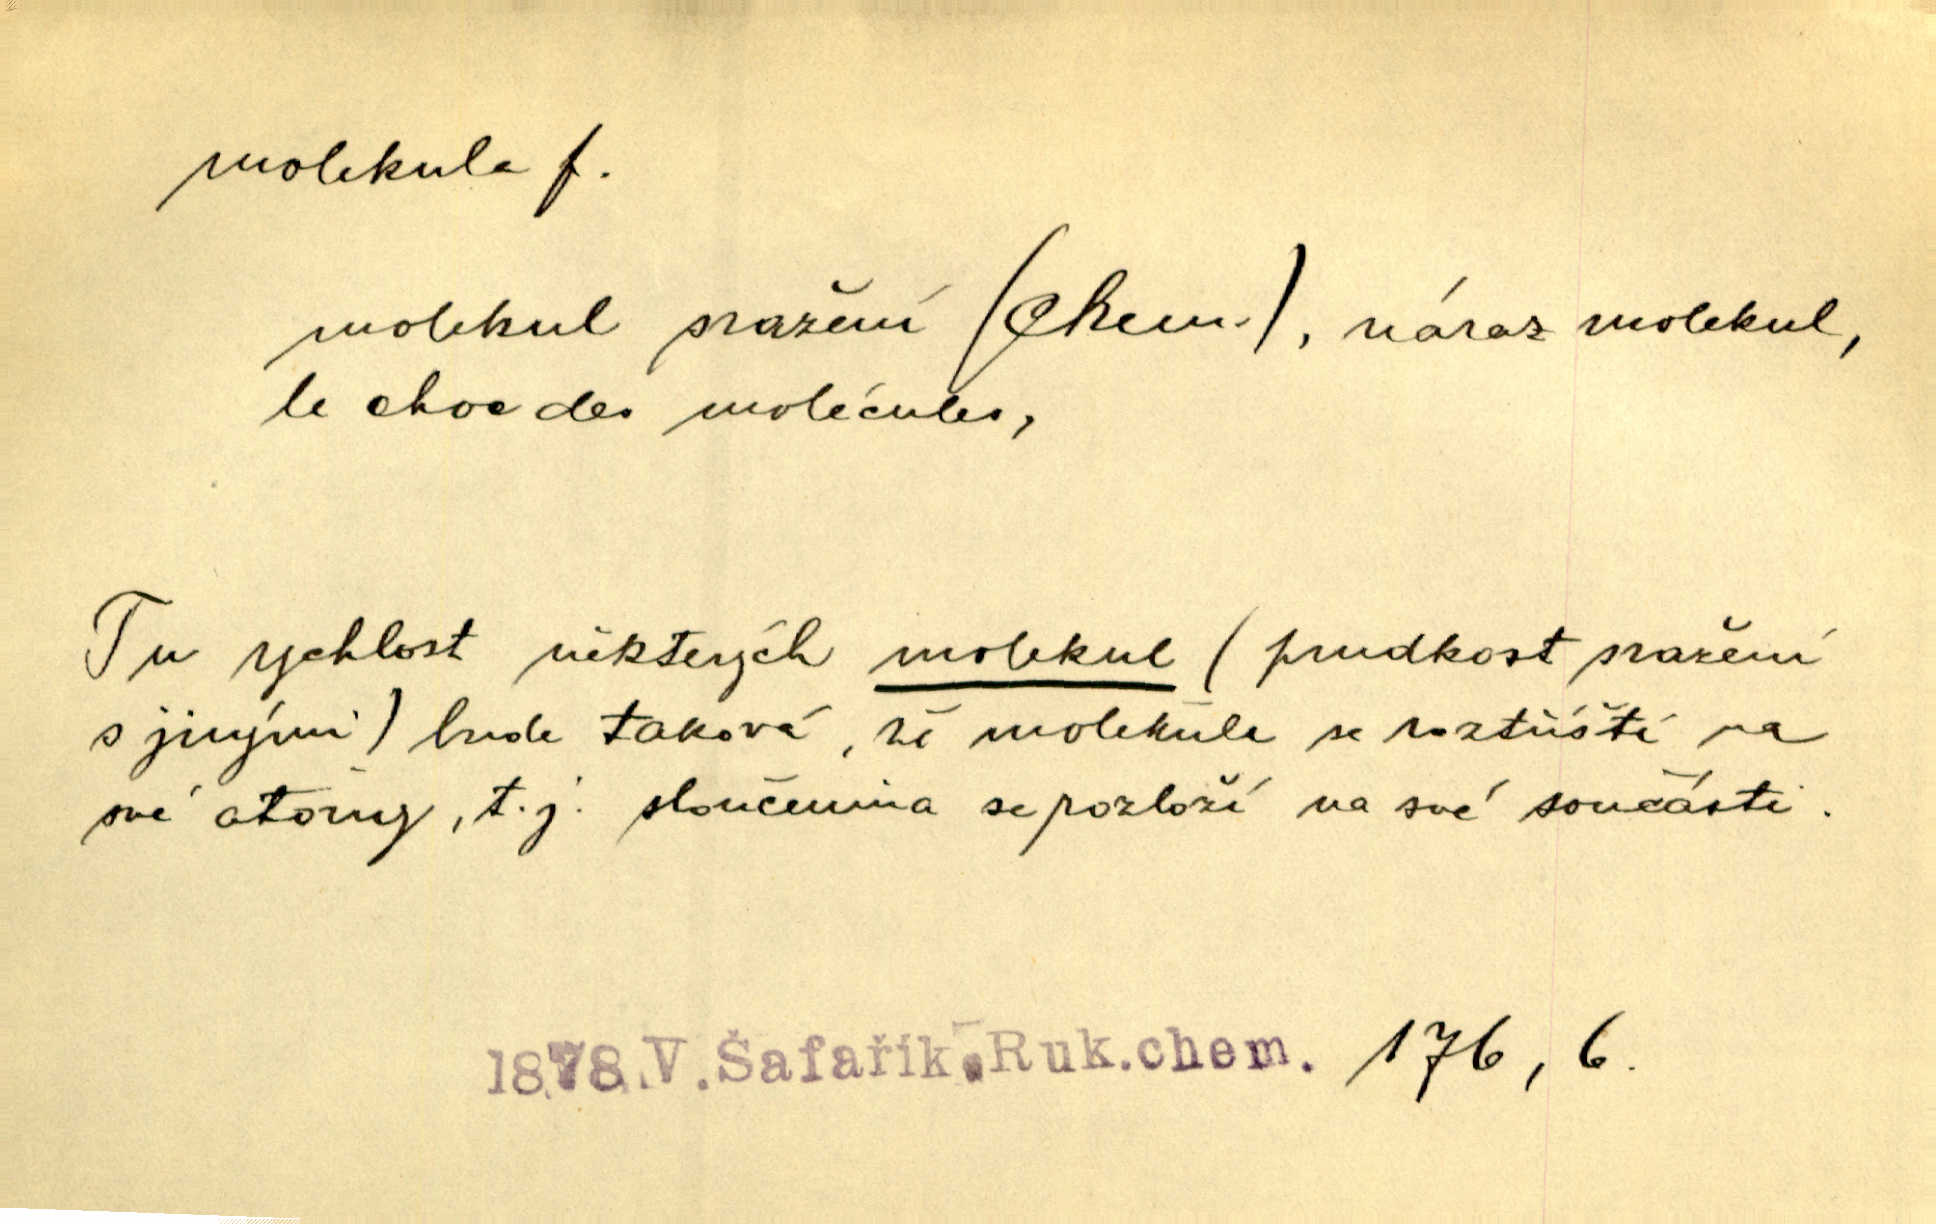 molekula f.
molekul sražení (Chem.), náraz molekul,
le choc des molécules,
Tu rychlost některých molekul (prudkost sražení
s jinými) bude taková, že molekula se roztříští na
své atomy, t.j. sloučenina se rozloží na své součásti.
1878. V. Šafařík. Ruk.chem. 176, 6.